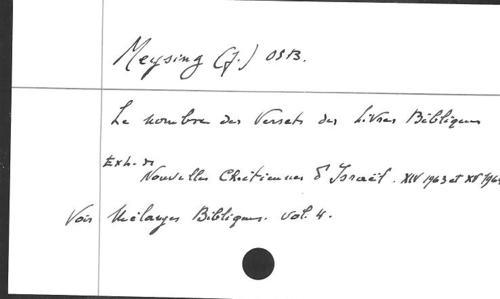 Meysing (J.) OSB.
Le nombre des Versets des Livres Bibliques
Extr. de
Nouvelles Chrétiennes d'Israël. XIV 1963 et XV 1964
Voir Mélanges Bibliques. vol. 4.